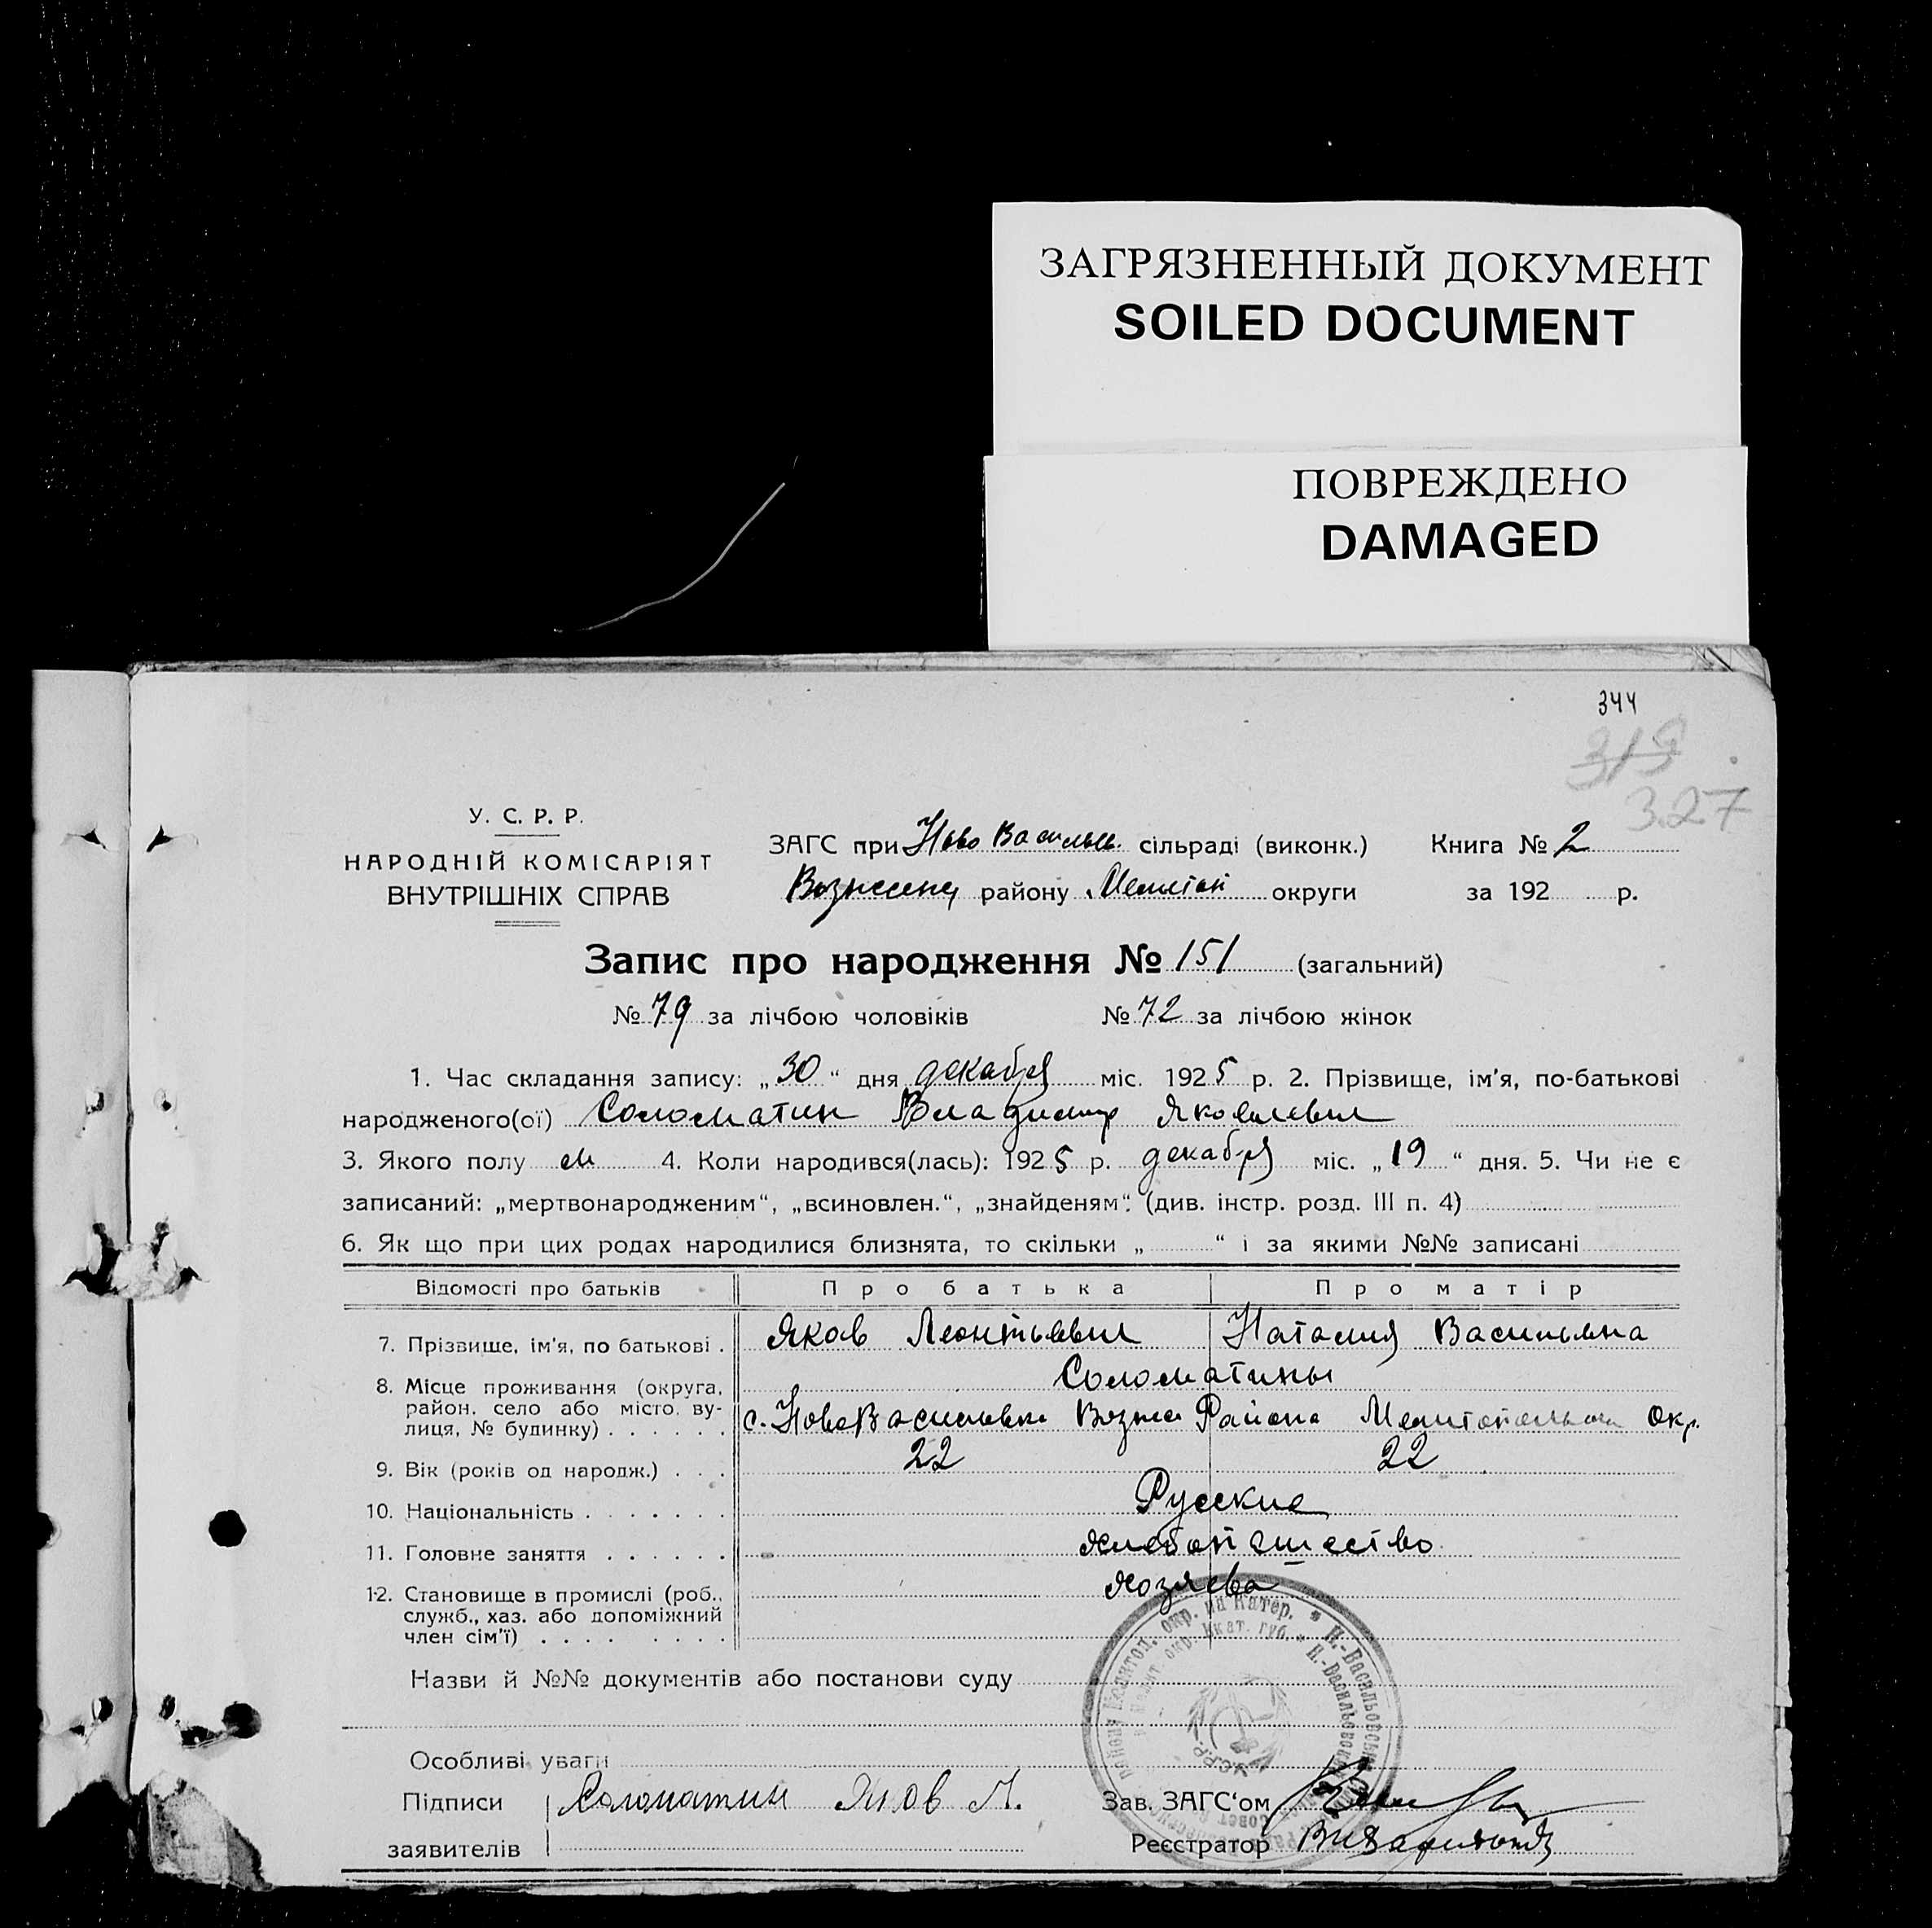 ЗАГРЯЗНЕННЫЙ ДОКУМЕНТ
SOILED DOCUMENT
ПОВРЕЖДЕНО
DAMAGED
344
319
327
У. С. Р. Р.
НАРОДНІЙ КОМІСАРІЯТ
ВНУТРІШНІХ СПРАВ
ЗАГС при Ново Васильев. сільраді (виконк.) Книга № 2
району Мелитоп округи за 192 р.
Запис про народження № 151 (загальний)
№ 79 за лічбою чоловіків № 72 за лічбою жінок
1. Час складання запису: „30“ дня декабря міс. 1925 р. 2. Прізвище, ім'я, по-батькові
народженого(ої) Соломатин Владимир Яковлевич
3. Якого полу м 4. Коли народився(лась): 1925 р. декабря міс. „19“ дня. 5. Чи не є
записаний: „мертвонародженим“, „всиновлен.“, „знайденям“. (див. інстр. розд. III п. 4)
6. Як що при цих родах народилися близнята, то скільки „ “ і за якими №№ записані
Відомості про батьків Про батька Про матір
7. Прізвище, ім'я, по батькові . Яков Леонтьевич Наталия Васильевна
Соломатины
8. Місце проживання (округа,
район, село або місто, ву-
лиця, № будинку) . . . . . . с. НовоВасильевка Возне Района Мелитопольской Окр.
9. Вік (років од народж.) . . . 22 22
10. Національність . . . . . . . Русские
11. Головне заняття . . . . . . Хлебопашество
12. Становище в промислі (роб., Хозяева
служб., хаз. або допоміжний
член сім'ї) . . . . . . . . .
Назви й №№ документів або постанови суду
Особливі уваги
Підписи Соломатин Яков Л. Зав. ЗАГС'ом
заявителів Реєстратор